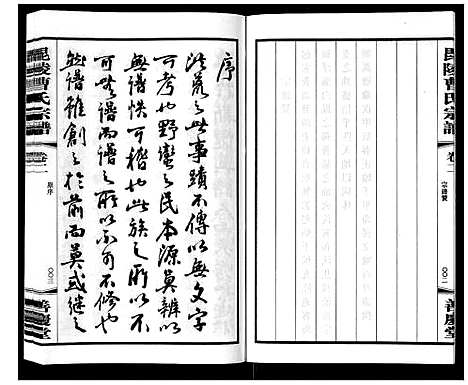 毘陵曹氏宗譜
卷一
宗譜贊
〇〇二
善慶堂
序
洪荒之世事蹟不傳以無文字
可考也野蠻之民本源莫辨以
無譜牒可稽也此族之所以不
可無譜而譜之所以不可不修也
然譜雖創之於前而莫或繼之
毘陵曹氏宗譜
卷一
原序
〇〇三
善慶堂